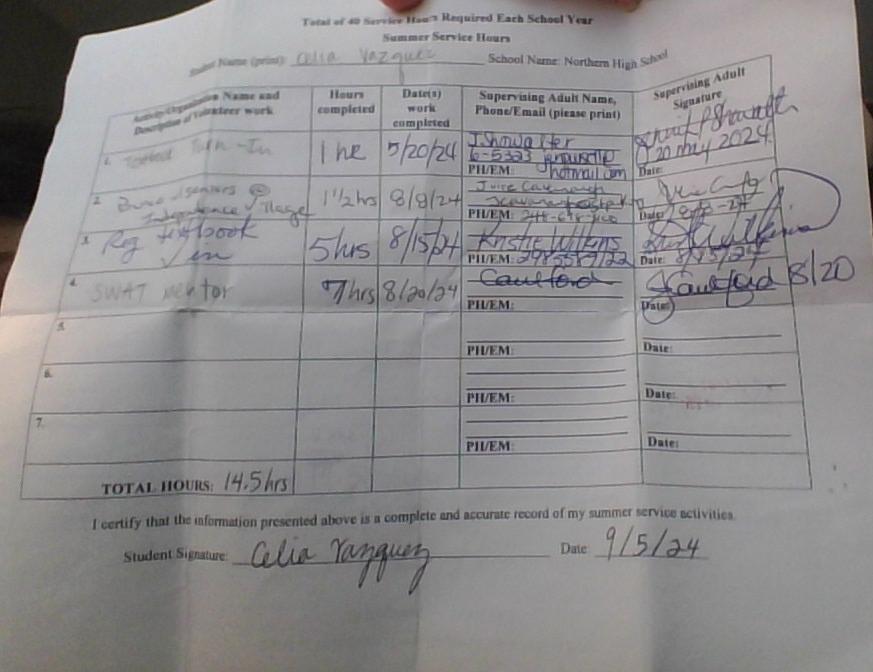 Total of 40 Service Hours Required Each School Year
Summer Service Hours
Student Name (print): Celia Vazquez School Name: Northern High School
Activity/Organization Name and Description of Volunteer work
Hours completed
Date(s) work completed
Supervising Adult Name, Phone/Email (please print)
Supervising Adult Signature
1. Textbook Turn-In
1 hr
5/20/24
J. Showalter
PH/EM: hotmail.com
20 May 2024
Date:
2. seniors @
Independence Village
1 1/2 hrs
8/8/24
Julie Cavanaugh
PH/EM:
Date:
3. Reg textbook
✓ in
5 hrs
8/15/24
Kristie Wilkins
PH/EM:
Date: 8/15/24
4. SWAT mentor
7 hrs
8/20/24
Caulford
PH/EM:
Caulford 8/20
Date:
5.
PH/EM:
Date:
6.
PH/EM:
Date:
7.
PH/EM:
Date:
TOTAL HOURS: 14.5 hrs
I certify that the information presented above is a complete and accurate record of my summer service activities.
Student Signature: Celia Vazquez Date: 9/5/24